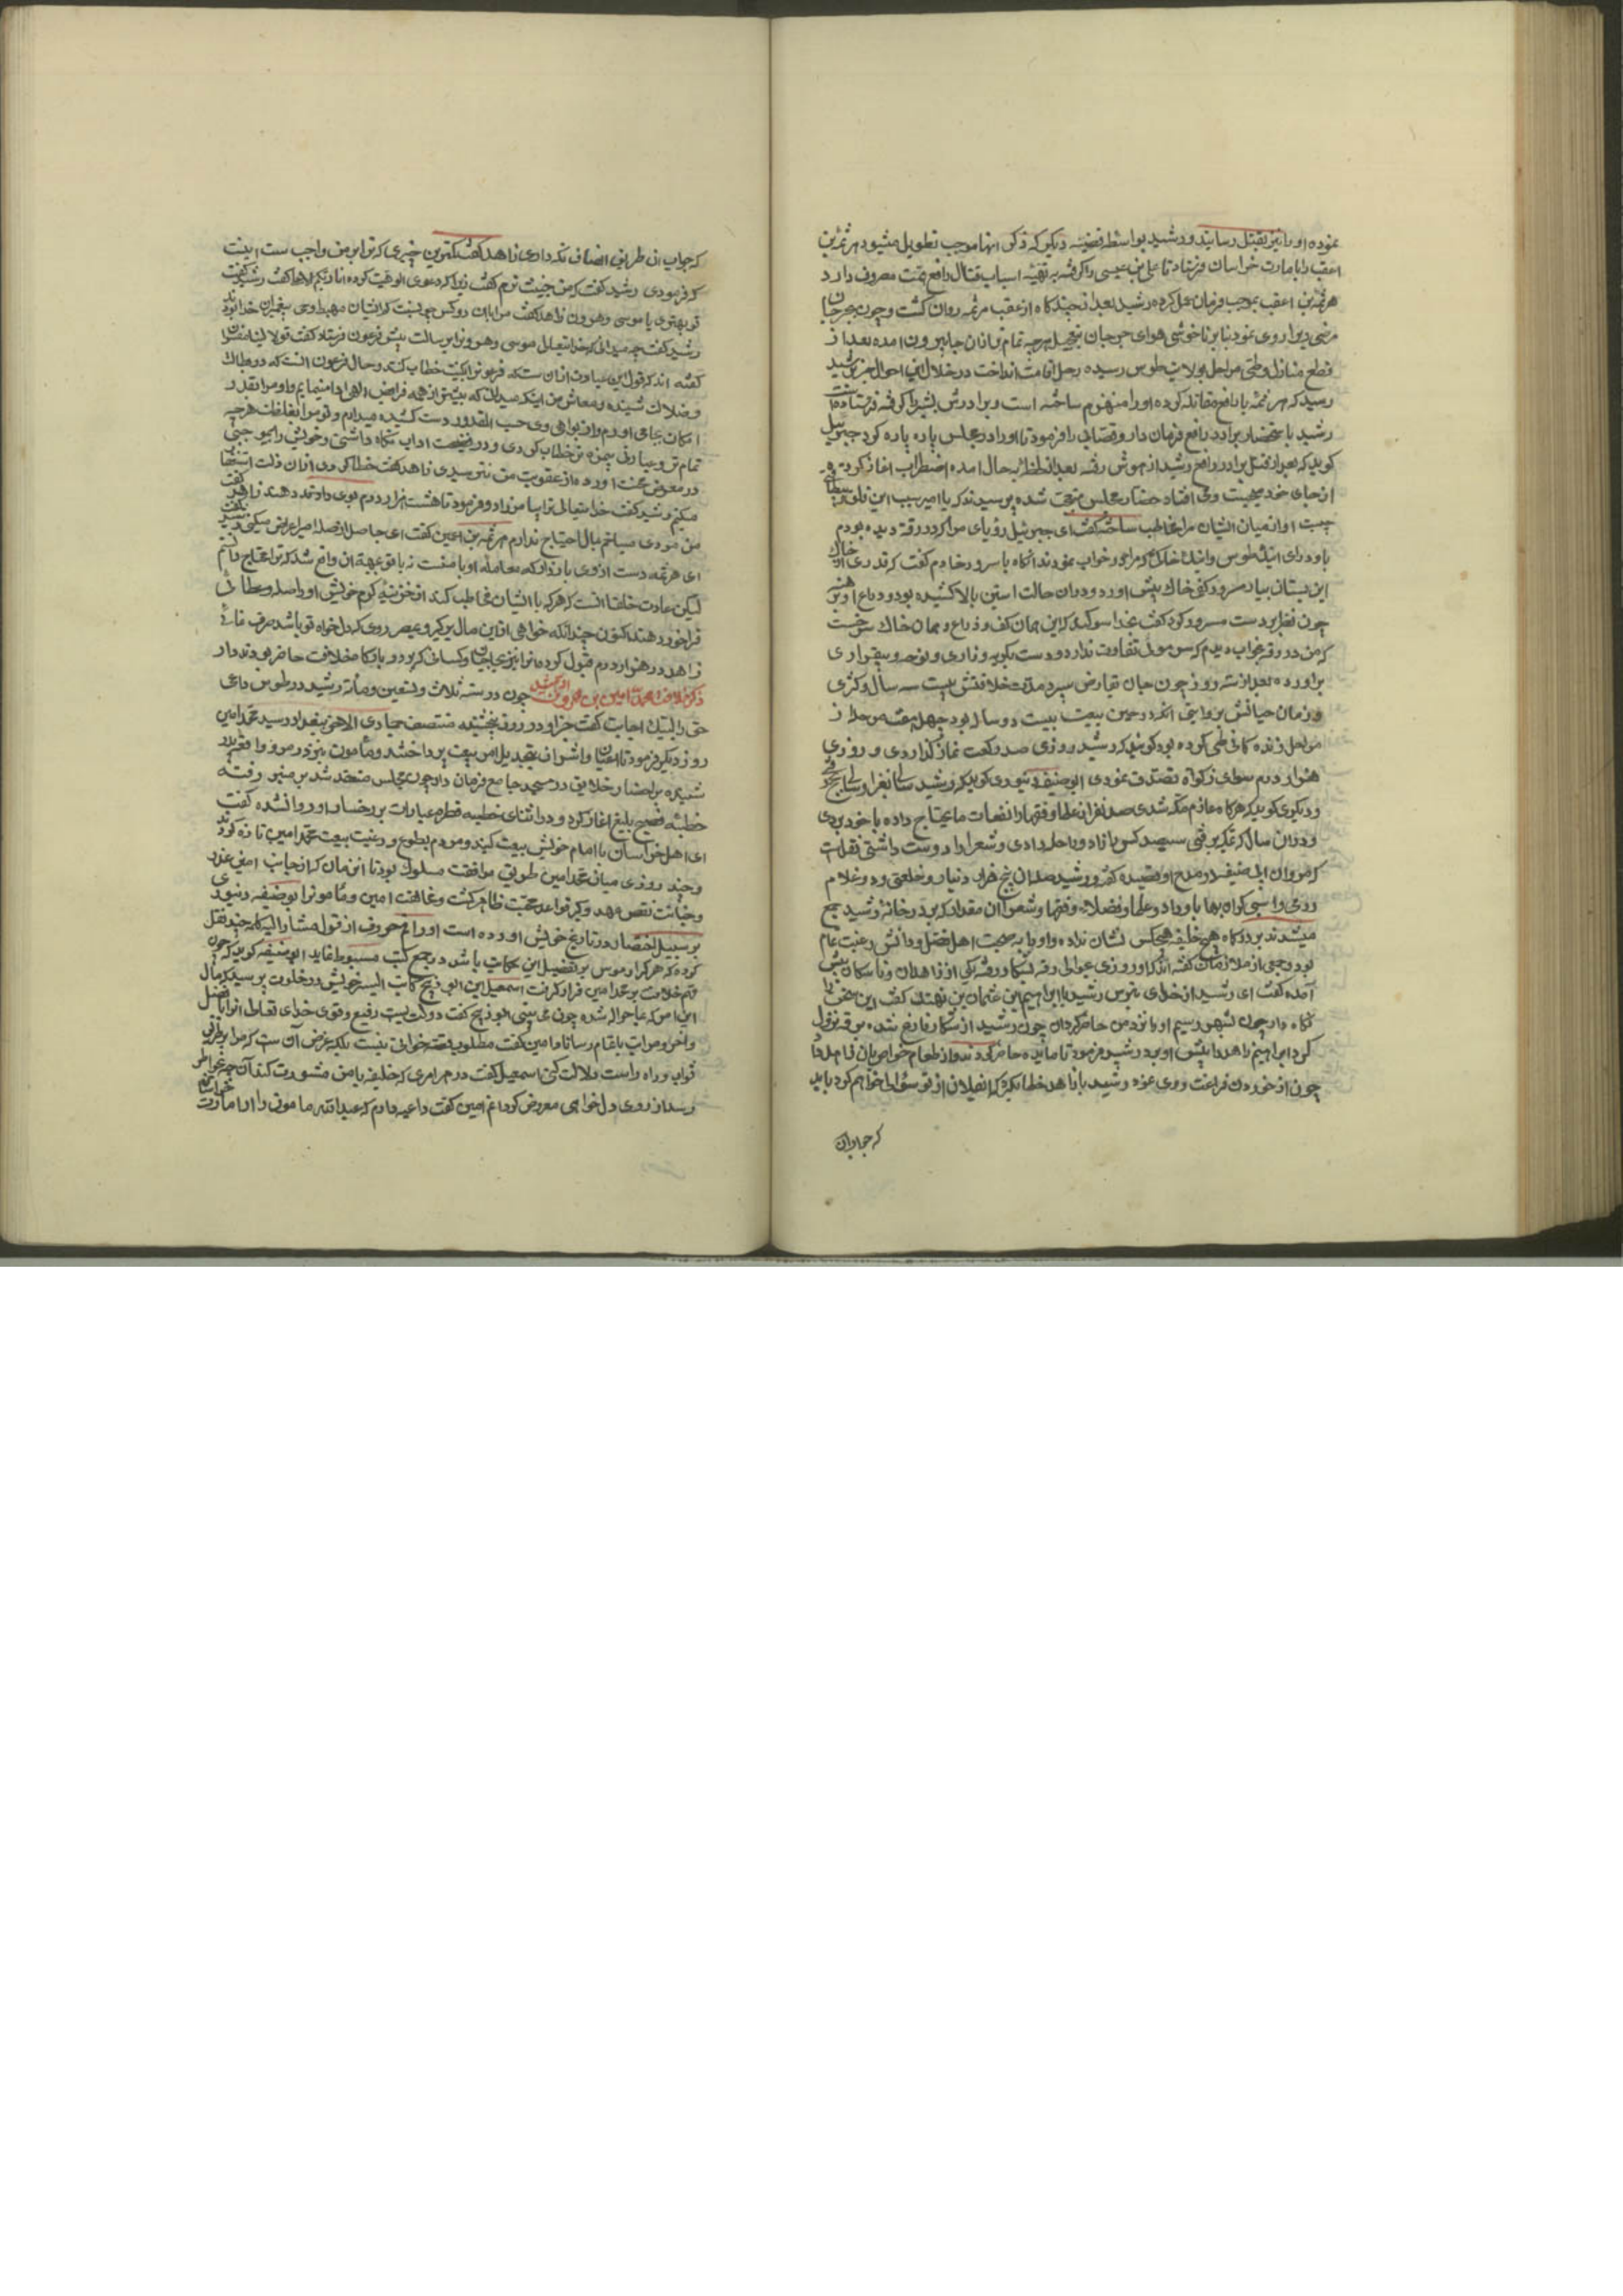 نموده او را نیز بقتل رسانید و رشید بواسطه قضیه دیگر که ذکر انها موجب تطویل میشود هرثمه بن
اعین را بامارت خراسان فرستاد تا علی بن عیسی را گرفته به تهیه اسباب قتال رافع همت مصروف دارد
هرثمه بن اعین بموجب فرمان عمل کرده رشید بعد از چند کاه از عقب هرثمه روان گشت و چون بجرجان
مرضی بر او روی نمود بنابر ناخوشی هوای جرجان بتعجیل هرچه تمامتر از ان جا بیرون امده بعد از
قطع منازل و طی مراحل بولایت طوس رسیده رحل اقامت انداخت در خلال این احوال خبر برشید
رسید که هرثمه با رافع مقاتله کرده او را منهزم ساخته است و برادرش بشیر را گرفته فرستاده است
رشید باحضار برادر رافع فرمان داد و قصابی را فرمود تا او را در مجلس پاره پاره کرد جبرئیل
کوید که بعد از قتل برادر رافع رشید از هوش رفته بعد از لحظه بحال امده اضطراب اغاز کرد
از جای خود میجست و می افتاد حضار مجلس متعجب شده پرسیدند که یا امیر سبب این قلق و
چیست او از میان ایشان مرا مخاطب ساخته گفت ای جبرئیل رؤیای مرا که در رقه دیده بودم
یاد داری اینک طوس و اینک خاک که مرا در خواب نمودند انکاه با مسرور خادم کفت که قدری از خاک
این بستان بیار مسرور کفی خاک پیش اورد و در ان حالت استین بالا کشیده بود و ذراع او برهنه
چون نظر بر دست مسرور کرد کفت بخدا سوکند که این همان کف و ذراع و همان خاک سرخست
که من در رقه بخواب دیدم که سر موئی تفاوت ندارد و دست بگریه و زاری و نوحه و بیقراری
براورده بعد از سه روز چون جان بقابض سپرد مدت خلافتش بیست سه سال و کثری
و زمان حیاتش بروایتی انکه در حین بیعت بیست دو سال بود چهل هفت مرحله از
مراحل زندگانی طی کرده بود کویند که رشید روزی صد رکعت نماز کذاردی و روزی
هزار درم سوای زکوة تصدق نمودی ابو حنیفه دینوری کوید که رشید سالی بغزا و سالی بحج رفتی
و دیکری کوید که هرکاه عازم مکه شدی صد نفر از علما و فقها را نفقات ما یحتاج داده با خود بردی
و در ان سال که بحج نرفتی سیصد کس با زاد و راحله دادی و شعرا را دوست داشتی نقلست
که مروان ابی حفصه در مدح او قصیده گفته و رشید صله ان پنج هزار دینار و خلعتی و ده غلام
رومی و اسبی که او بهاء باو داد و علما و فضلا و فقها و شعرا ان مقدار که بر در خانه رشید جمع
میشدند بر درکاه هیچ خلیفه هیچکس نشان نداده و او را به صحبت اهل فضل و دانش رغبت تمام
بود و جمعی از ملازمان گفته اند که او روزی بشکار رفته یکی از زاهدان و ناسکان پیش
آمده گفت ای رشید از خدای بترس رشید با ابراهیم بن عثمان بن نهیک کفت این شخص را
نگاه دار چون بشهر رسیم او را نزد من حاضر کردان چون رشید از شکار فارغ شده برقه نزول
کرد ابراهیم زاهد را پیش او برد رشید فرمود تا مایده حاضر کردند و از طعام خواص بان زاهد داد
چون از خوردن فراغت روی نموده رشید با زاهد خطاب کرد که ای فلان از تو سؤال خواهم کرد باید
که جواب ان
که جواب از طریق انصاف نکه داری زاهد گفت کمترین چیزی که ترا بر من واجب است اینست
که فرمودی رشید کفت که من خبیث ترم یا فرعون گفت زیرا که دعوی الوهیت کرده انا ربکم الاعلی گفت رشید گفت
تو بهتری یا موسی و هرون زاهد گفت مرا با ان دو کس چه نسبت که ایشان مهبط وحی و پیغمبران خدا بودند
رشید گفت چه میدانی که خدایتعالی موسی و هرون را برسالت پیش فرعون فرستاد گفت قولا له قولا لینا
گفته اند که قول لین عبارت از ان ست که فرعون را بکنیت خطاب کنند و حال فرعون انست که در
و ضلالت شنیده و معاش من اینکه میدانی که بیشتر از همه فرایض الهی ادا مینمایم و اوامر او را بقدر
امکان بجای اورم و از نواهی وی حسب المقدور دست کشیده میدارم و تو مرا بغلظت هرچه
تمامتر و عبارتی بیمزه تر خطاب کردی و در نصیحت اداب نگاه نداشتی و خویش را بموجبی
در معرض محنت اورده از عقوبت من نترسیدی زاهد گفت خطا کردم از ان زلت استغفار
میکنم رشید گفت خدایتعالی ترا بیامرزاد و فرمود تا هشت هزار درم بوی دادند زاهد گفت
من مردی سیاحم بمال احتیاج ندارم هرثمه بن اعین گفت ای جاهل از صله امیر اعراض میکنی رشید گفت
ای هرثمه دست از وی بازدار که معامله او با منست نه با تو
لیکن عادت خلفا انست که هرکه با ایشان مخاطب کند از خزینه کرم خویش او را صله و عطائی
فراخور دهند اکنون چندانکه خواهی از این مال بر کیر و بهر روی که دلخواه تو باشد صرف نمائی
زاهد دو هزار درم قبول کرده انرا نیز بحاجبان و کسانی که بر در بارکاه خلافت حاضر بودند داد
ذکر خلافت محمد امین بن هرون الرشید چون در سنه ثلاث و تسعین و مائه رشید در طوس داعی
حق را لبیک اجابت گفت خبر او در روز پنجشنبه منتصف جمادی الاخر ببغداد رسید محمد امین
روز دیکر فرمود تا اعیان و اشراف بتجدید امر بیعت پرداختند و مامون نیز در مرو واقعه پدر
شنیده باحضار خلایق در مسجد جامع فرمان داد چون مجلس منعقد شد بر منبر رفته
خطبه فصیح بلیغ اغاز کرد و در اثنای خطبه قطره عبرات بر رخسار او روان شده گفت
ای اهل خراسان با امام خویش بیعت کنید و مردم بطوع و رغبت بیعت محمد امین تازه کردند
و چند روزی میان محمد امین طریق موافقت مسلوک بود تا ان زمان که از جانب امین غدر
و خیانت نقص عهد و دیکر قواعد محبت ظاهر گشت و مخالفت امین و مامون را ابو حنیفه دینوری
بر سبیل اختصار در تاریخ خویش اورده است او راق حروف از قول مشار الیه کلمه چند نقل
کرده که هرکرا هوس بر تفضیل این حکایت باشد رجوع بکتب مبسوطه نماید ابو حنیفه کوید که چون
مهم خلافت بر محمد امین قرار گرفت اسمعیل بن ابی ذبیح کاتب السر خویش در خلوت پرسید که مال
این امر که بما حواله شده چون می بینی ابو ذبیح گفت دولتیست رفیع و قوی خدای تعالی انرا بافضل
و اتم مراتب باتمام رساناد امین گفت مطلوب قصه خوانی نیست بلکه غرض آن ست که مرا بر طریق
ثواب و راه راست دلالت کنی اسمعیل گفت در هر امری که خلیفه با من مشورت کند آنچه بخاطر
رسد از روی دلخواهی معروض گردانم امین گفت داعیه دارم که عبدالله مامون را از امارت خراسان